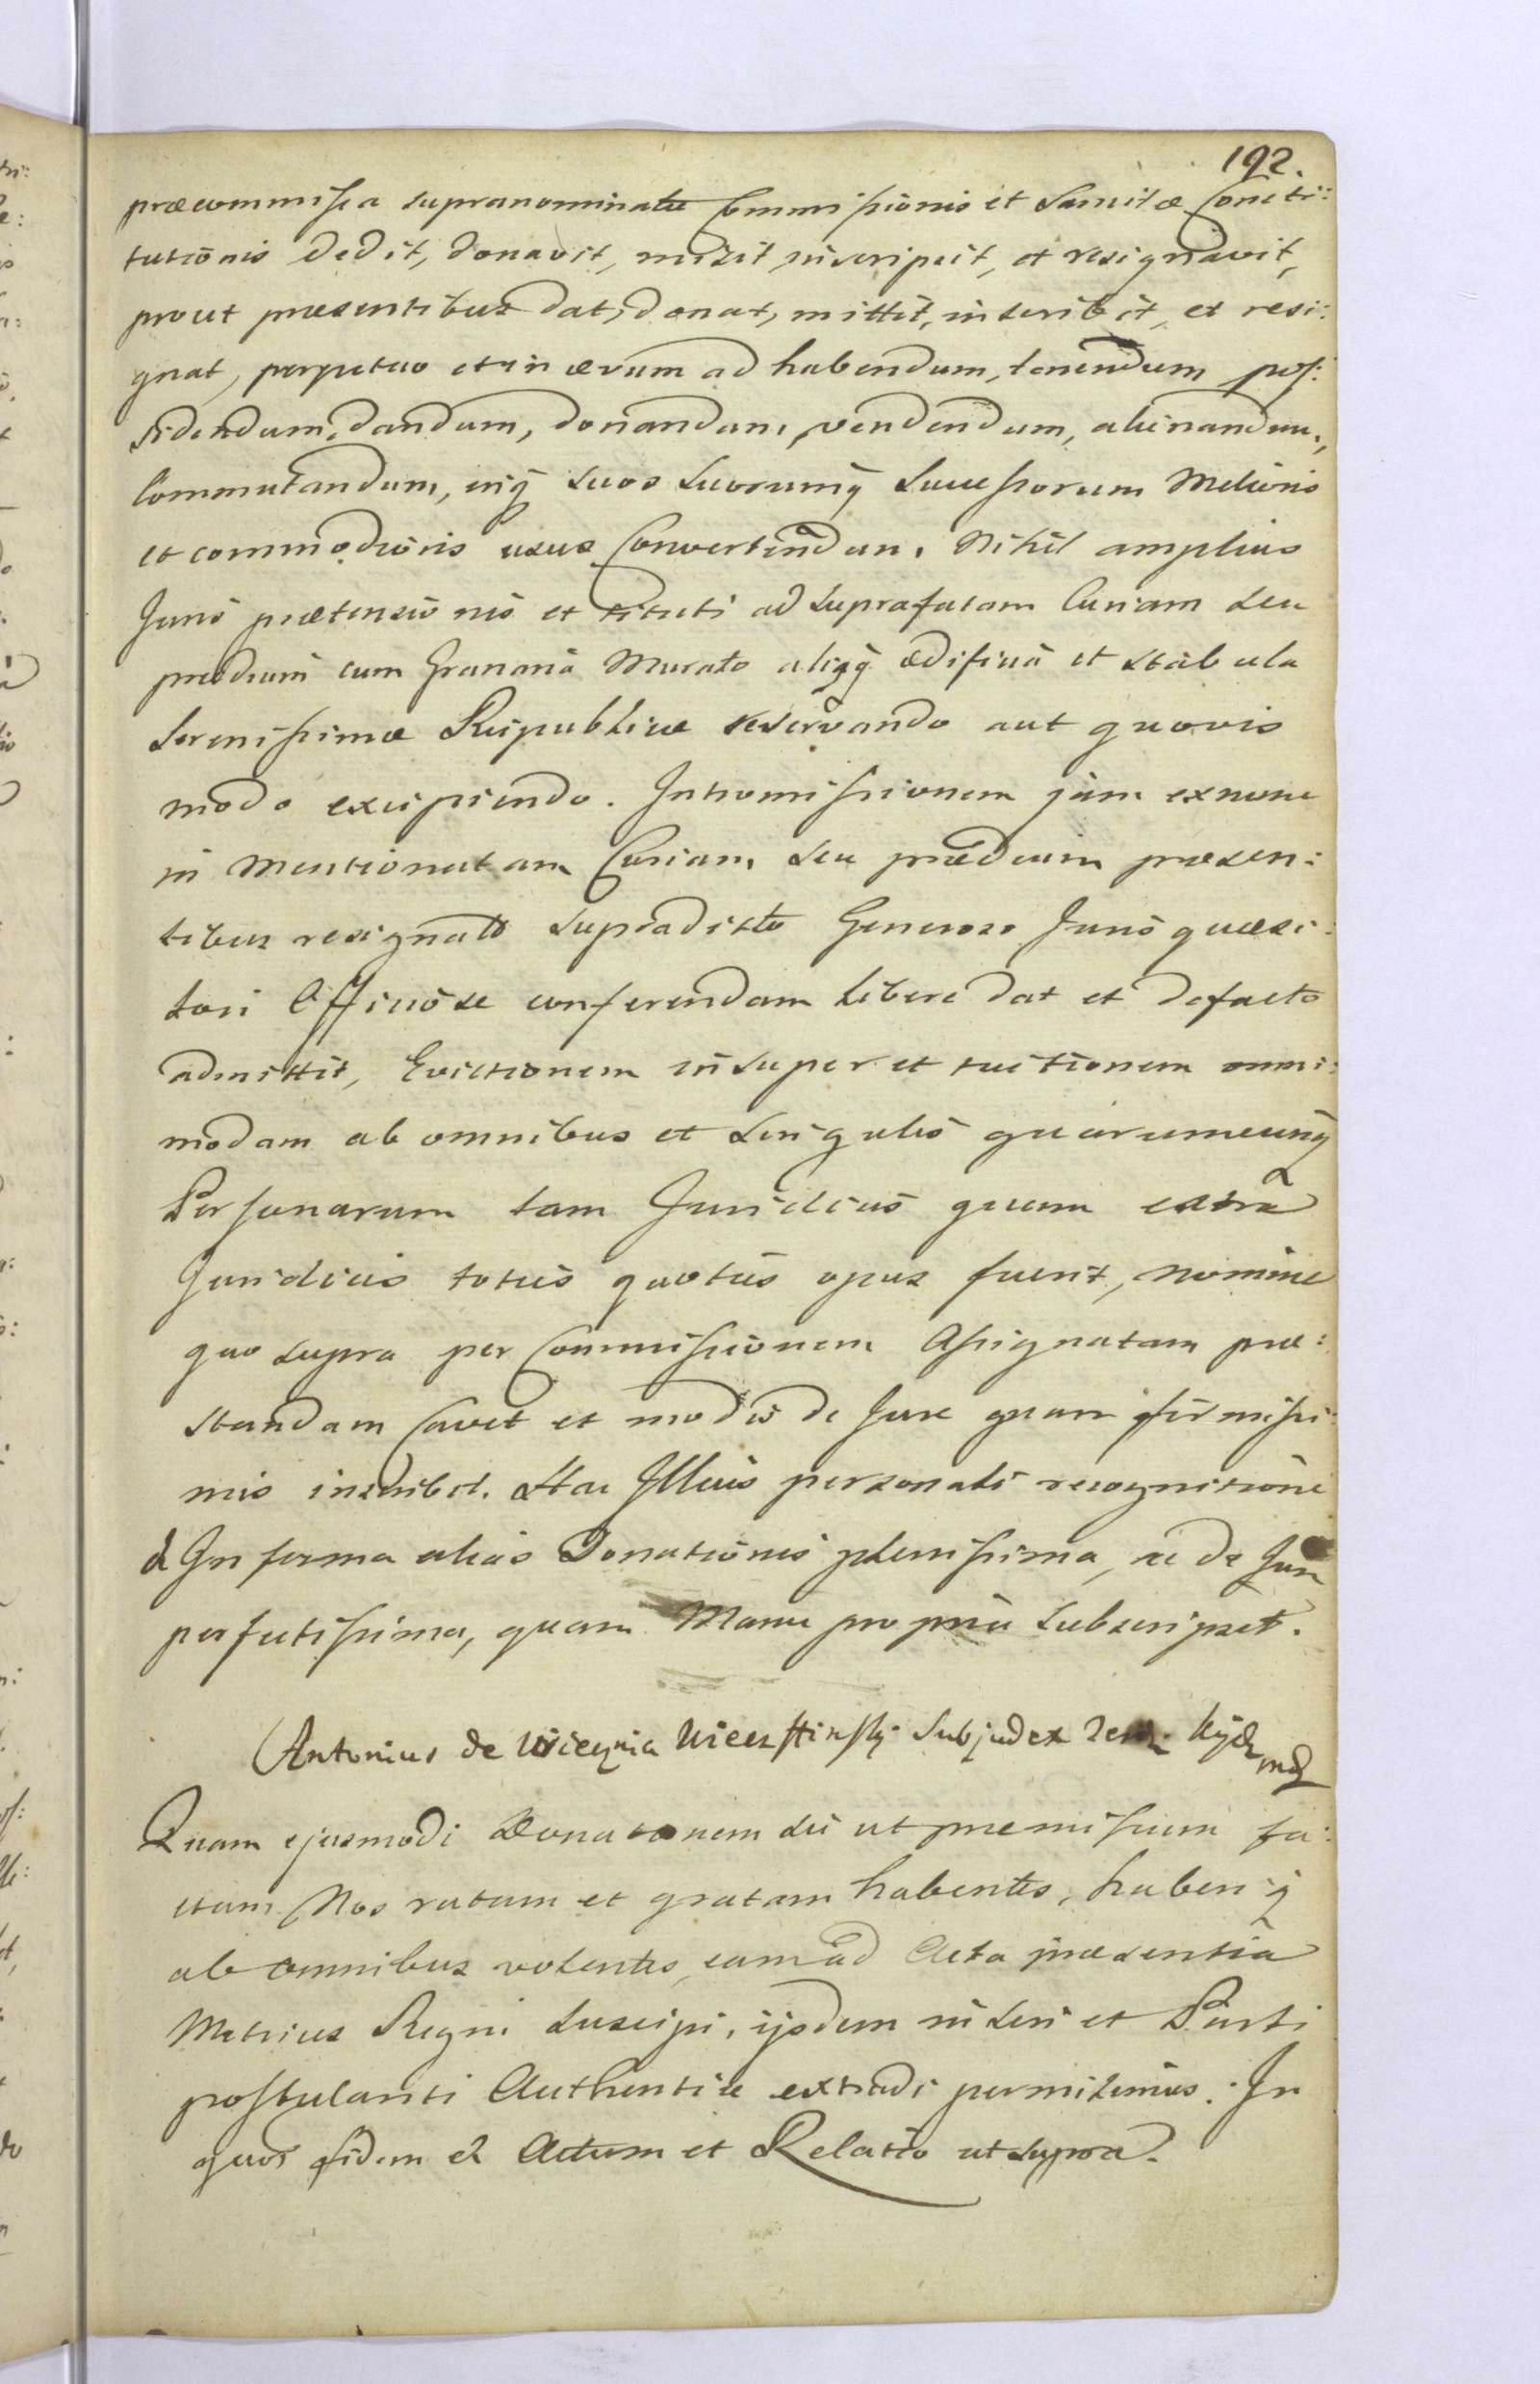 192.
præcommissa supranominatæ Commissionis et Sancitæ Consti:
tutionis dedit, donavit, misit, inscripsit, et resignavit,
prout præsentibus dat, donat, mittit, inscribit, et resi:
gnat, perpetuo et in ævum ad habendum, tenendum pos:
sidendum, dandum, donandum, vendendum, alienandum,
Commutandum, inq̃ suos suorumq̃ Successorum Melioris
et commodioris usus Convertendum. Nihil amplius
Juris prætensionis et tituli ad suprafatam Curiam seu
prædium cum Granario Murato alijsq̃ ædificia et stabula
Serenissimæ Reipublicæ reservando aut quovis
modo excipiendo. Intromissionem jam exnunc
in Mentionatam Curiam seu prædium præsen:
tibus resignato supradicto Generoso Juris quæsi:
tori Officiose conferendam libere dat et defacto
admittit, Evictionem insuper et tuitionem omni:
modam ab omnibus et singulis quarumcunq̃
Personarum tam Juridicis quam extra
Juridicis toties quoties opus fuerit, nomine
quo supra per Commissionem Assignatam præ:
standam Cavet et modis de Jure quam firmissi:
mis inscribit. Hac Illius personali recognitione
& In forma alias Donationis plenissima, ac de Jure
perfectissima, quam Manu propria subscripsit.
Antonius de Subjudex
Quam ejusmodi Donationem sic ut præmissum fa:
ctam Nos ratam et gratam habentes, haberiq̃
ab omnibus volentes, eam ad Acta præsentia
Metrices Regni suscipi, ijsdem inseri et Parti
postulanti Authentice extradi permisimus. In
quor̃ fidem & Actum et Relatio ut supra.